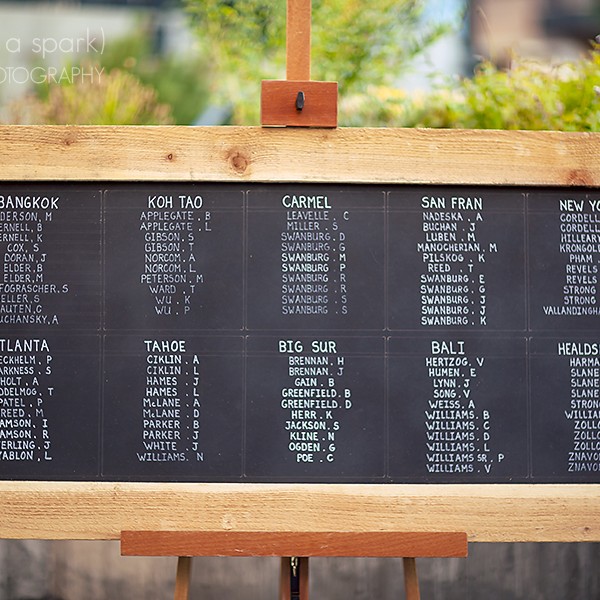 a spark)
OTOGRAPHY
BANGKOK
DERSON, M
ERNELL, B
ERNELL, K
COX, S
DORAN, J
ELDER, B
ELDER, M
FOGRASCHER, S
ELLER, S
AUTEN, G
UCHANSKY, A
KOH TAO
APPLEGATE . B
APPLEGATE . L
GIBSON . S
GIBSON . T
NORCOM . A
NORCOM . L
PETERSON . M
WARD . T
WU . K
WU . P
CARMEL
LEAVELLE . C
MILLER . S
SWANBURG . D
SWANBURG . G
SWANBURG . M
SWANBURG . P
SWANBURG . R
SWANBURG . R
SWANBURG . S
SWANBURG . S
SAN FRAN
NADESKA . A
BUCHAN . J
LUBEN . M
MANOCHERIAN . M
PILSKOG . K
REED . T
SWANBURG . E
SWANBURG . G
SWANBURG . J
SWANBURG . J
SWANBURG . K
NEW YO
CORDELL
CORDELL
HILLEARY
KRONGOLD
PHAM
REVELS
REVELS
STRONG
STRONG
VALLANDINGHA
TLANTA
ECKHELM . P
ARKNESS . S
HOLT . A
DDELMOG . T
PATEL . P
REED . M
AMSON . I
AMSON . R
ERLING . J
YABLON , L
TAHOE
CIKLIN . A
CIKLIN . L
HAMES . J
HAMES . L
McLANE . A
McLANE . D
PARKER . B
PARKER . J
WHITE . J
WILLIAMS . N
BIG SUR
BRENNAN . H
BRENNAN . J
GAIN . B
GREENFIELD . B
GREENFIELD . D
HERR . K
JACKSON . S
KLINE . N
OGDEN . G
POE . C
BALI
HERTZOG . V
HUMEN . E
LYNN . J
SONG . V
WEISS . A
WILLIAMS . B
WILLIAMS . C
WILLIAMS . D
WILLIAMS . L
WILLIAMS SR . P
WILLIAMS . V
HEALDS
HARMA
SLANE
SLANE
SLANE
STRON
WILLIAM
ZOLLO
ZOLLO
ZNAVO
ZNAVO